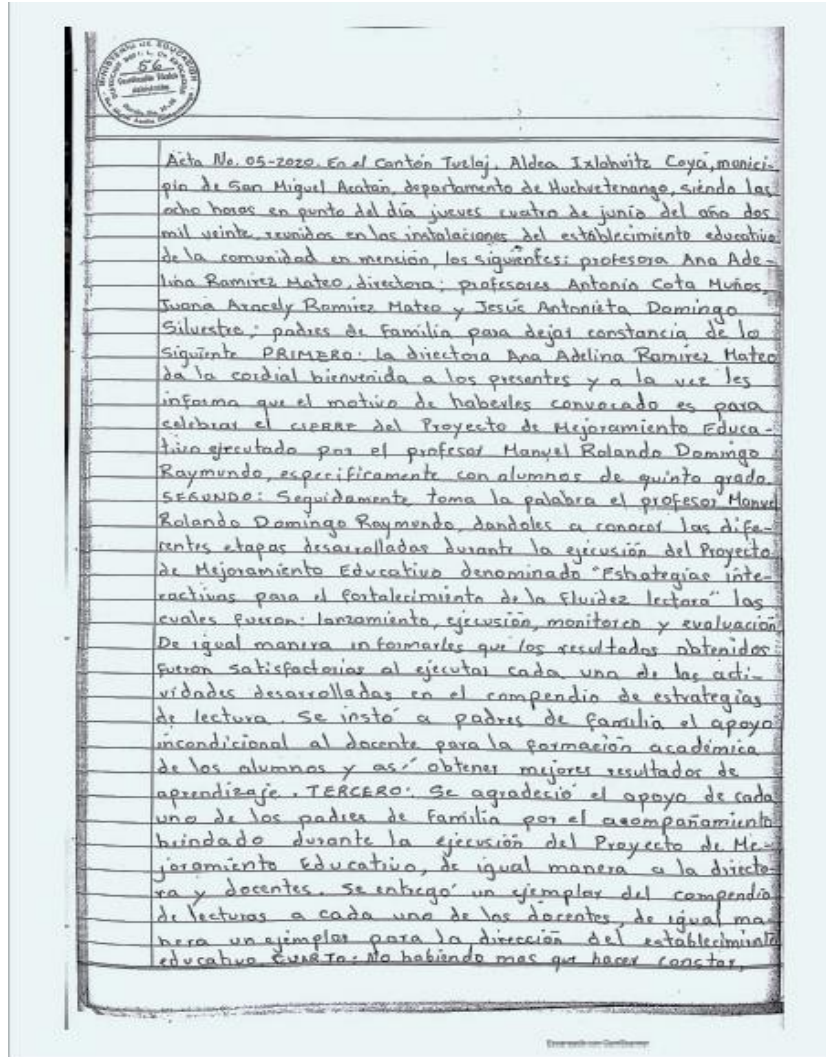 MINISTERIO DE EDUCACION
56
Acta No. 05-2020. En el Cantón Tuzlaj, Aldea Ixlahuitz Coyá, munici-
pio de San Miguel Acatán, departamento de Huehuetenango, siendo las
ocho horas en punto del día jueves cuatro de junio del año dos
mil veinte, reunidos en las instalaciones del establecimiento educativo
de la comunidad en mención, los siguientes: profesora Ana Ade-
lina Ramírez Mateo, directora; profesores Antonio Cota Muños,
Juana Aracely Ramírez Mateo y Jesús Antonieta Domingo
Silvestre; padres de familia para dejar constancia de lo
siguiente PRIMERO: la directora Ana Adelina Ramírez Mateo
da la cordial bienvenida a los presentes y a la vez les
informa que el motivo de haberles convocado es para
celebrar el CIERRE del Proyecto de Mejoramiento Educa-
tivo ejecutado por el profesor Manuel Rolando Domingo
Raymundo, específicamente con alumnos de quinto grado.
SEGUNDO: Seguidamente toma la palabra el profesor Manuel
Rolando Domingo Raymundo, dandoles a conocer las dife-
rentes etapas desarrolladas durante la ejecusión del Proyecto
de Mejoramiento Educativo denominado "Estrategias inte-
ractivas para el fortalecimiento de la fluidez lectora" las
cuales fueron: lanzamiento, ejecusión, monitoreo y evaluación
De igual manera informarles que los resultados obtenidos
fueron satisfactorias al ejecutar cada una de las acti-
vidades desarrolladas en el compendio de estrategias
de lectura. Se instó a padres de familia el apoyo
incondicional al docente para la formación académica
de los alumnos y así obtener mejores resultados de
aprendizaje. TERCERO: Se agradeció el apoyo de cada
uno de los padres de familia por el acompañamiento
brindado durante la ejecusión del Proyecto de Me-
joramiento Educativo, de igual manera a la directo-
ra y docentes. Se entregó un ejemplar del compendio
de lecturas a cada uno de los docentes, de igual ma-
nera un ejemplar para la dirección del establecimiento
educativo CUARTO: No habiendo mas que hacer constar,
Escaneado con CamScanner